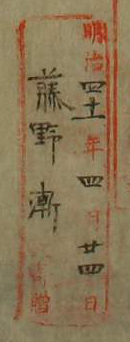 明治四十一年四月廿四日
藤野漸
寄贈